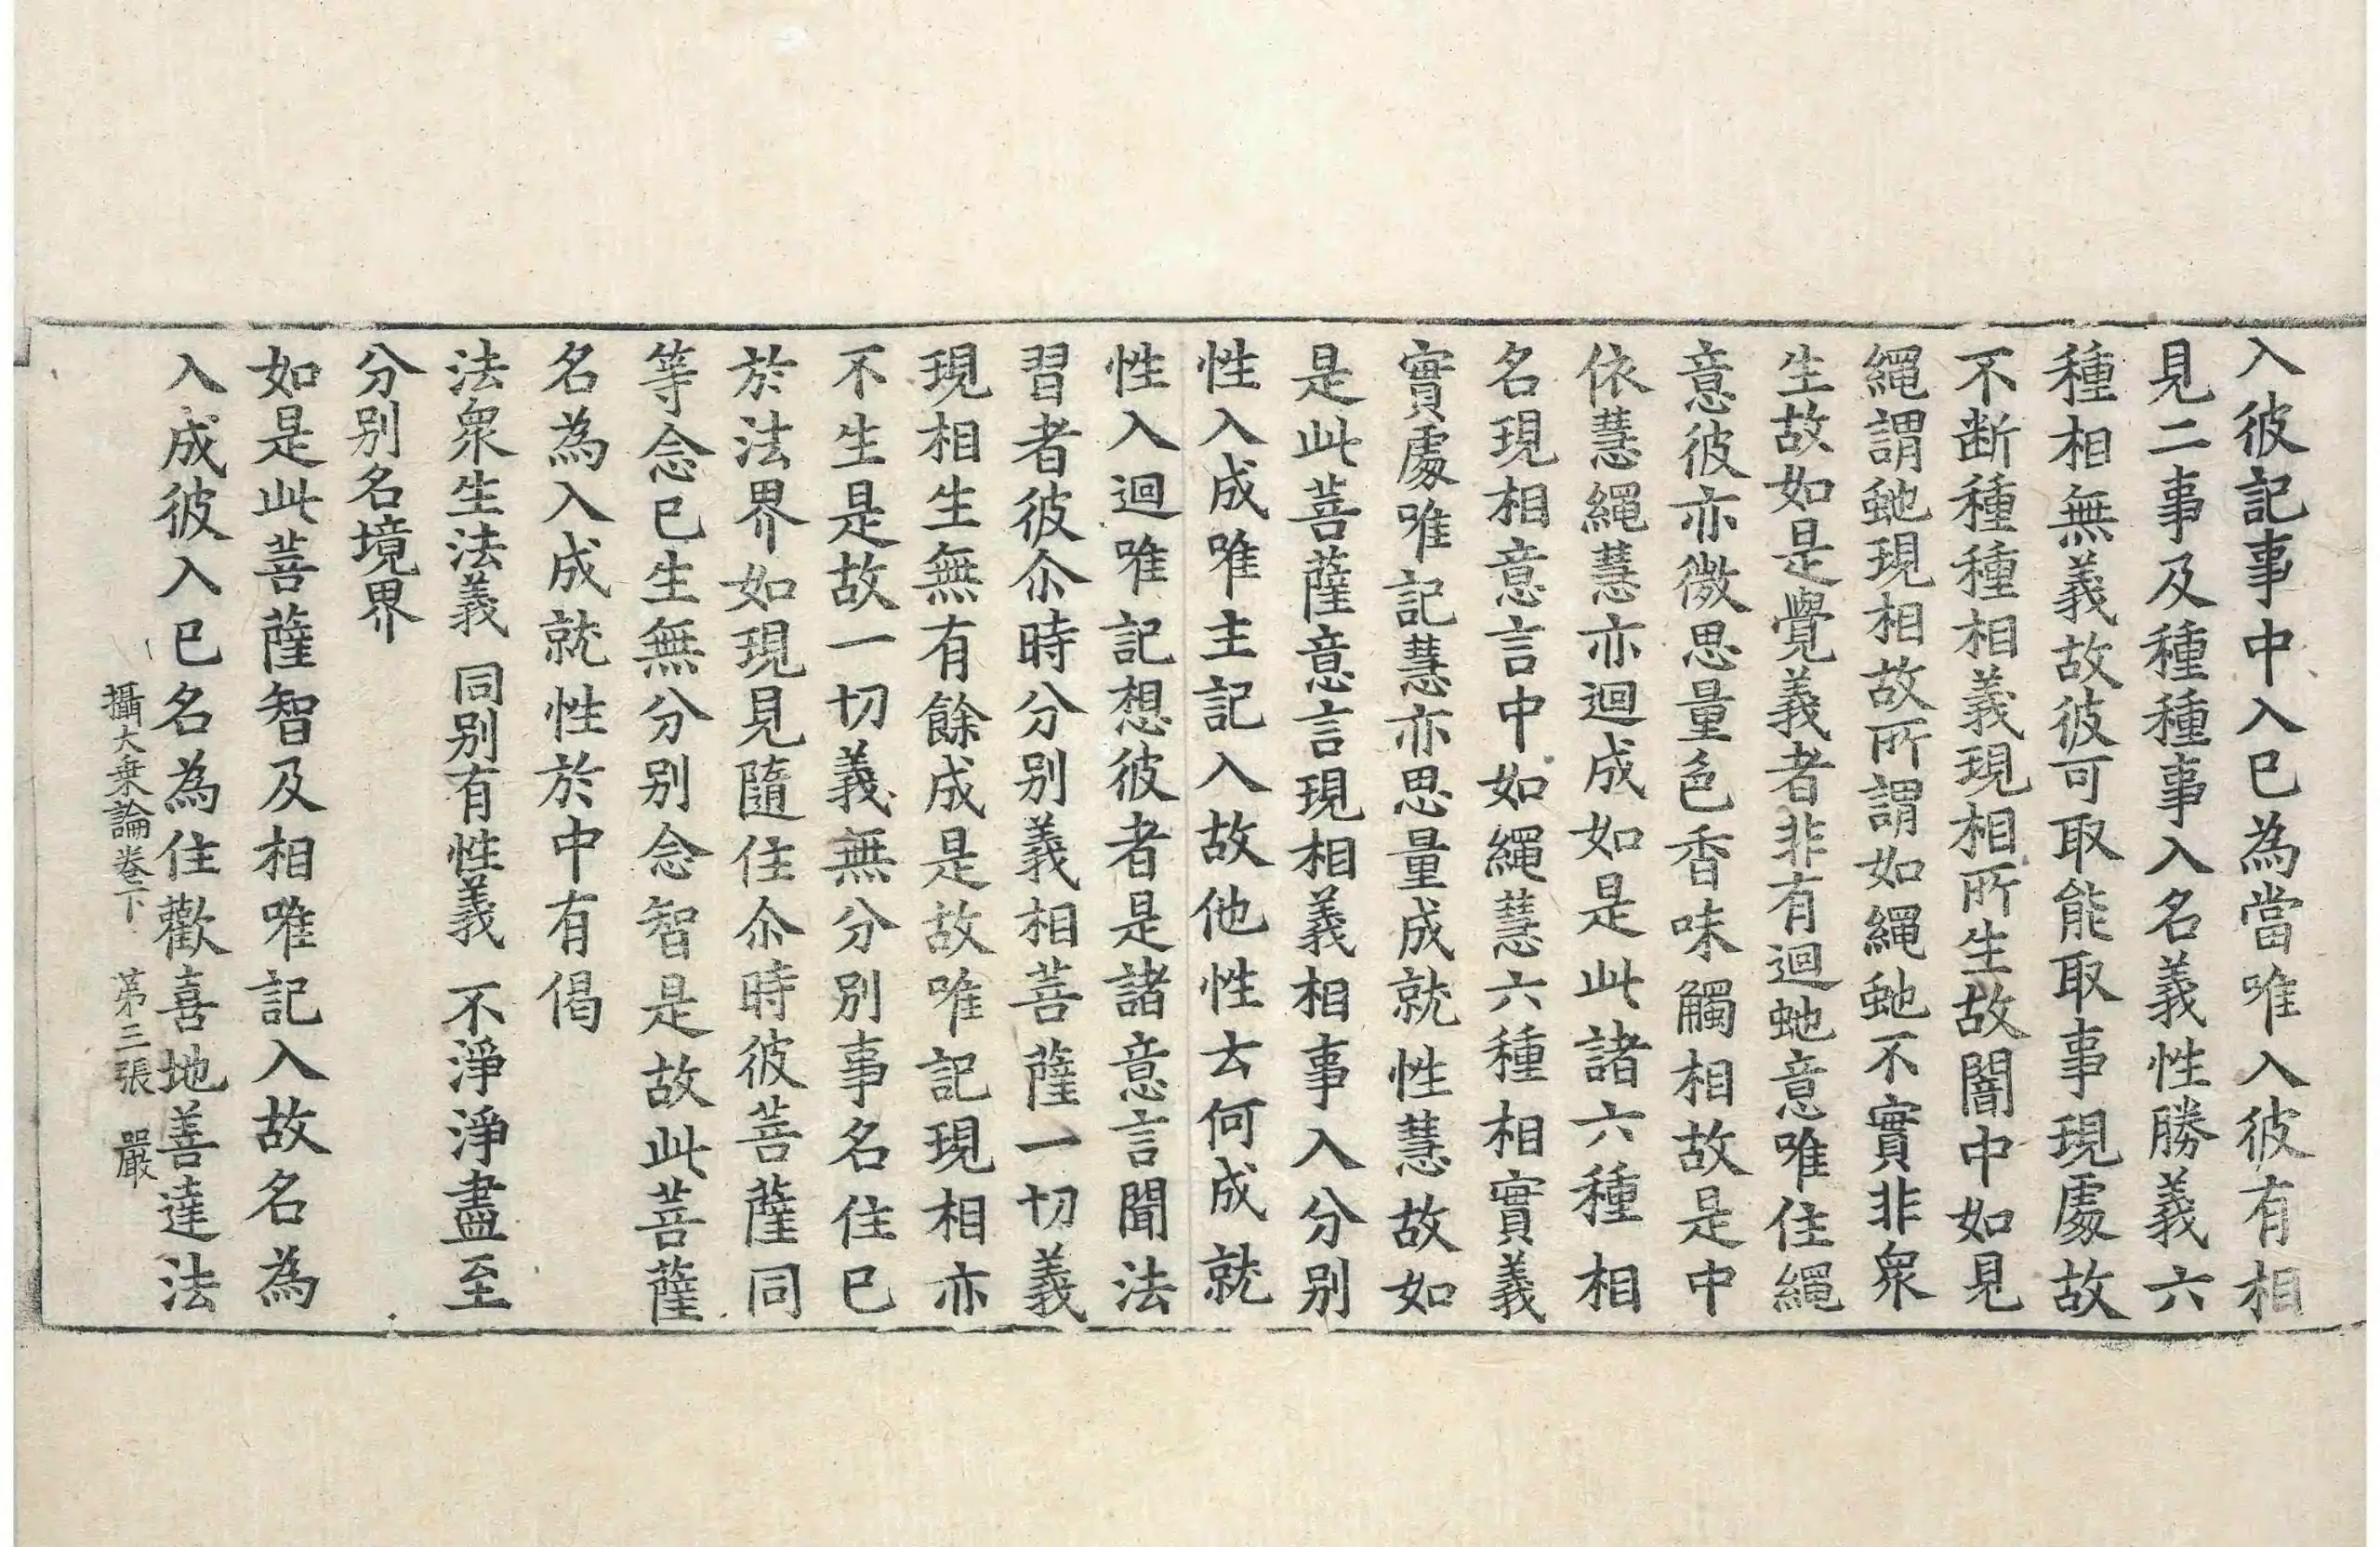 入彼記事中入已為當唯入彼有相
見二事及種種事入名義性勝義六
種相無義故彼可取能取事現處故
不断種種相義現相所生故闇中如見
繩謂虵現相故所謂如繩虵不實非衆
生故如是覺義者非有迴虵意唯住繩
意彼亦微思量色香味觸相故是中
依慧繩慧亦迴成如是此諸六種相
名現相意言中如繩慧六種相實義
實處唯記慧亦思量成就性慧故如
是此菩薩意言現相義相事入分别
性入成唯主記入故他性去何成就
性入迴唯記想彼者是諸意言聞法
習者彼尒時分别義相菩薩一切義
現相生無有餘成是故唯記現相亦
不生是故一切義無分别事名住已
於法界如現見隨住尒時彼菩薩同
等念已生無分别念智是故此菩薩
名為入成就性於中有偈
法衆生法義 同别有性義 不淨淨盡至
分别名境界
如是此菩薩智及相唯記入故名為
入成彼入已名為住歡喜地善達法
攝大乗論卷下 苐三張 嚴